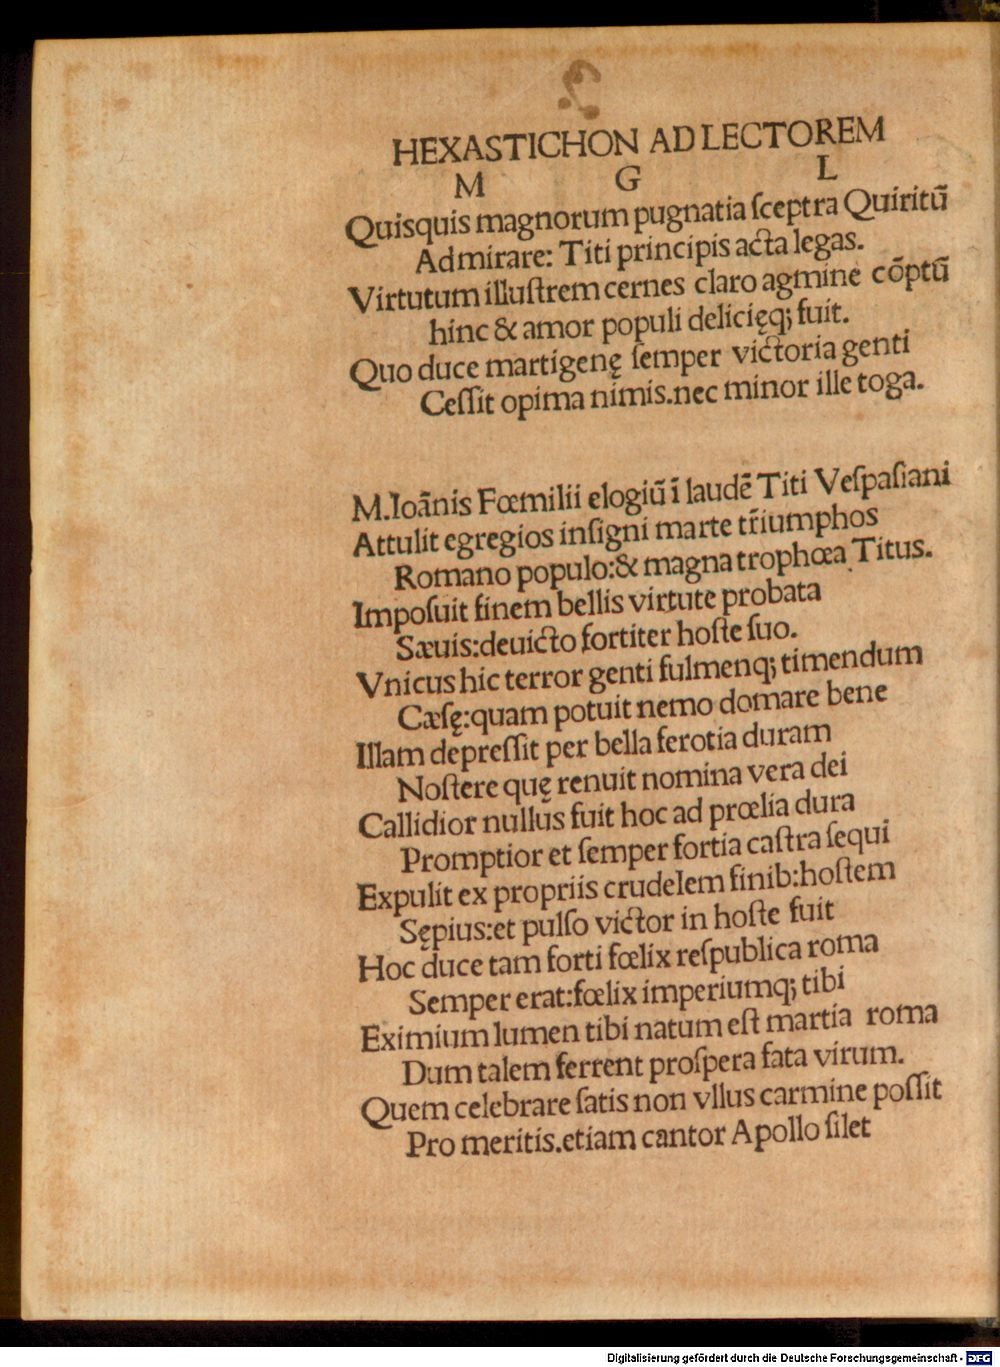 HEXASTICHON AD LECTOREM
M G L
Quisquis magnorum pugnatia ſceptra Quiritū
Admirare: Titi principis acta legas.
Virtutum illuſtrem cernes claro agmine cōptū
hinc & amor populi delicięq; fuit.
Quo duce martigenę ſemper victoria genti
Ceſſit opima nimis.nec minor ille toga.
M.Ioānis Fœmilii elogiū ī laudē Titi Veſpaſiani
Attulit egregios inſigni marte tr̄iumphos
Romano populo:& magna trophœa Titus.
Impoſuit finem bellis virtute probata
Sæuis:deuicto fortiter hoſte ſuo.
Vnicus hic terror genti fulmenq; timendum
Cæſę:quam potuit nemo domare bene
Illam depreſſit per bella ferotia duram
Noſtere quę renuit nomina vera dei
Callidior nullus fuit hoc ad prœlia dura
Promptior et ſemper fortia caſtra ſequi
Expulit ex propriis crudelem finib:hoſtem
Sępius:et pulſo victor in hoſte fuit
Hoc duce tam forti fœlix reſpublica roma
Semper erat:fœlix imperiumq; tibi
Eximium lumen tibi natum eſt martia roma
Dum talem ferrent proſpera fata virum.
Quem celebrare ſatis non vllus carmine poſſit
Pro meritis.etiam cantor Apollo ſilet
Digitalisierung gefördert durch die Deutsche Forschungsgemeinschaft - DFG